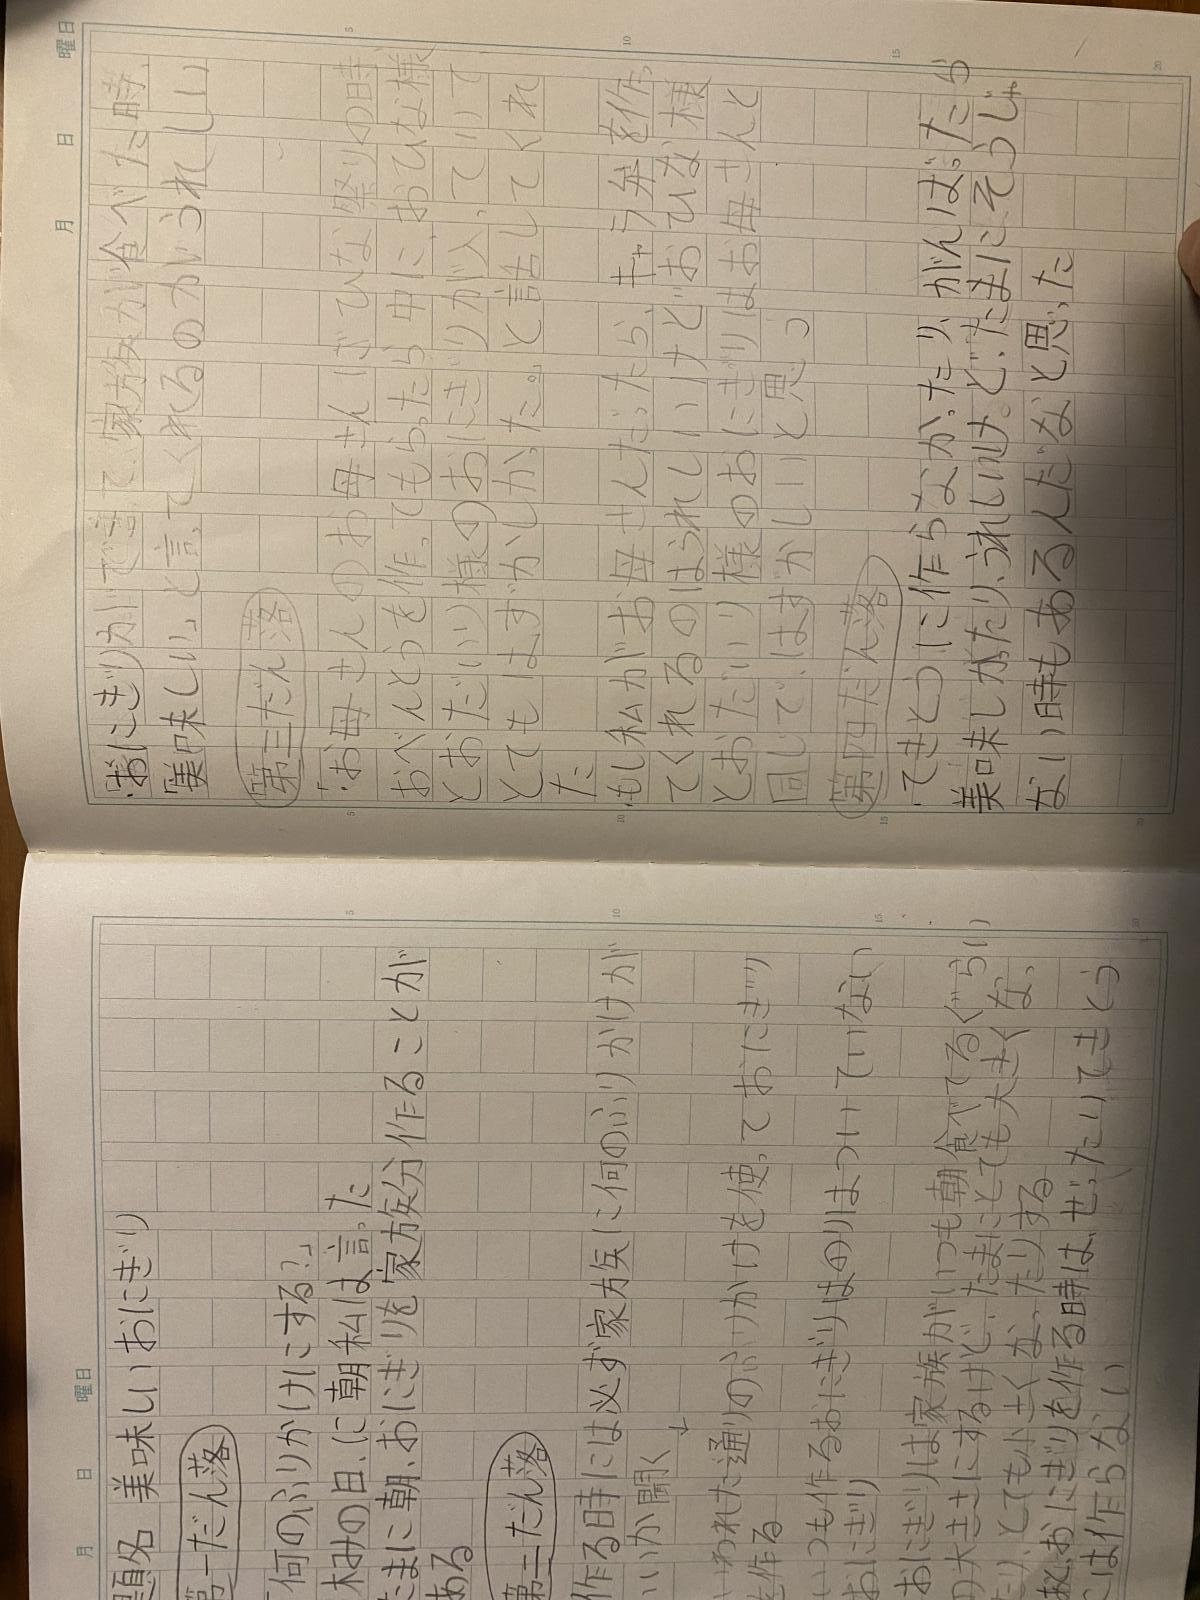 月 日 曜日
題名 美味しいおにぎり
第一だん落
「何のふりかけにする?」
休みの日、に朝私は言った
たまに朝、おにぎりを家族分作ることが
ある
第二だん落
作る時には必ず家族に何のふりかけが
いいか聞く
いわれた通りのふりかけを使っておにぎり
を作る
いつも作るおにぎりはのりはついていない
おにぎり
おにぎりは家族がいつも朝食べてるぐらい
の大きさにするけど、たまにとても大きくなっ
たり、とても小さくなったりする
おにぎりを作る時は、ぜったいてきとう
には作らない
月 日 曜日
・おにぎりができて、家族が食べた時、
「美味しい」と言ってくれるのがうれしい
第三だん落
「お母さんのお母さんはひな祭りの時、
おべんとうを作ってもらったら中におひな様
とおだいり様のおにぎりが入っていて
とてもはずかしかった。」と話してくれ
た
・もし私がお母さんだったら、キャラ弁を作っ
てくれるのはうれしいけどおひな様
とおだいり様のおにぎりはお母さんと
同じで、はずかしいと思う
第四だん落
・てきとうに作らなかったり、がんばったら
美味しかったり、うれしいけど、たまにそうじゃ
ない時もあるんだなと思った
5
10
15
20
5
10
15
20